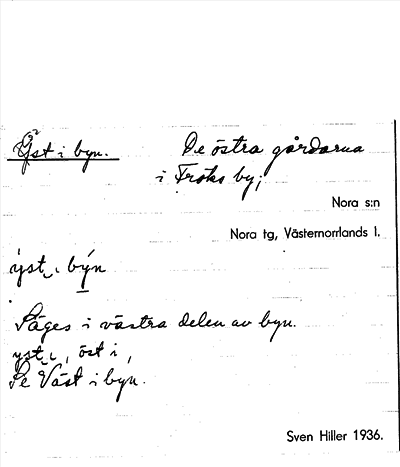 Yst i byn. De östra gårdarna
i Fröks by;
Nora s:n
Nora tg, Västernorrlands l.
ýst ι býn
Säges i västra delen av byn.
yst ι, öst i,
Se Väst i byn.
Sven Hiller 1936.